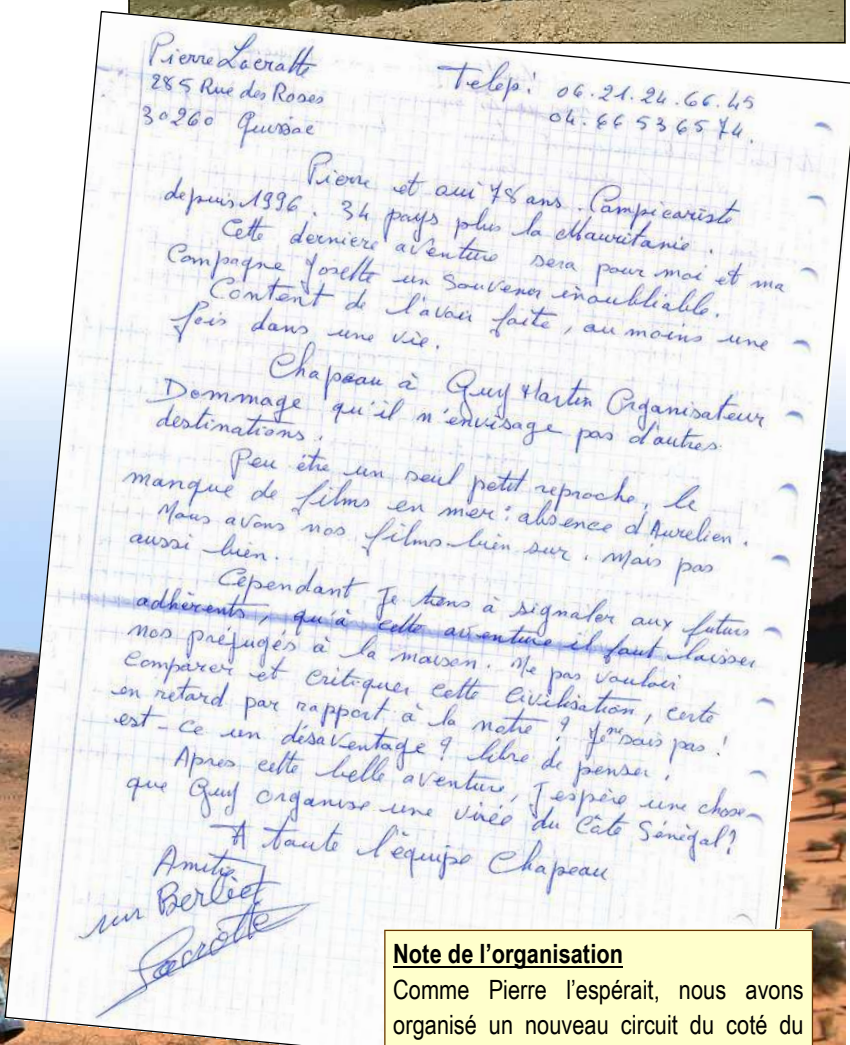 Pierre Lacratte
285 Rue des Roses
30260 Quissac
Telep: 06.21.24.66.45
04.66 53 65 74.
Pierre et oui 78 ans. Campicariste
depuis 1996. 34 pays plus la Mauritanie.
Cette derniere aventure sera pour moi et ma
Compagne Josette un Souvenir inoubliable.
Content de l'avoir faite, au moins une
fois dans une vie.
Chapeau à Guy Martin Organisateur
Dommage qu'il n'envisage pas d'autres
destinations.
Peu être un seul petit reproche, le
manque de films en mer: absence d'Aurelien.
Nous avons nos films bien sur. Mais pas
aussi bien.
Cependant Je tiens à signaler aux futurs
adhèrents, qu'à cette aventure il faut laisser
nos préjugés à la maison. Ne pas vouloir
comparer et critiquer cette Civilisation, certe
en retard par rapport à la notre ? Je ne sais pas !
est-ce un désaventage ? libre de penser !
Apres cette belle aventure, J'espère une chose
que Guy organise une virée du Côte Sénégal ?
A toute l'équipe Chapeau
Amitié
sur Berliet
Lacratte
Note de l'organisation
Comme Pierre l'espérait, nous avons
organisé un nouveau circuit du coté du